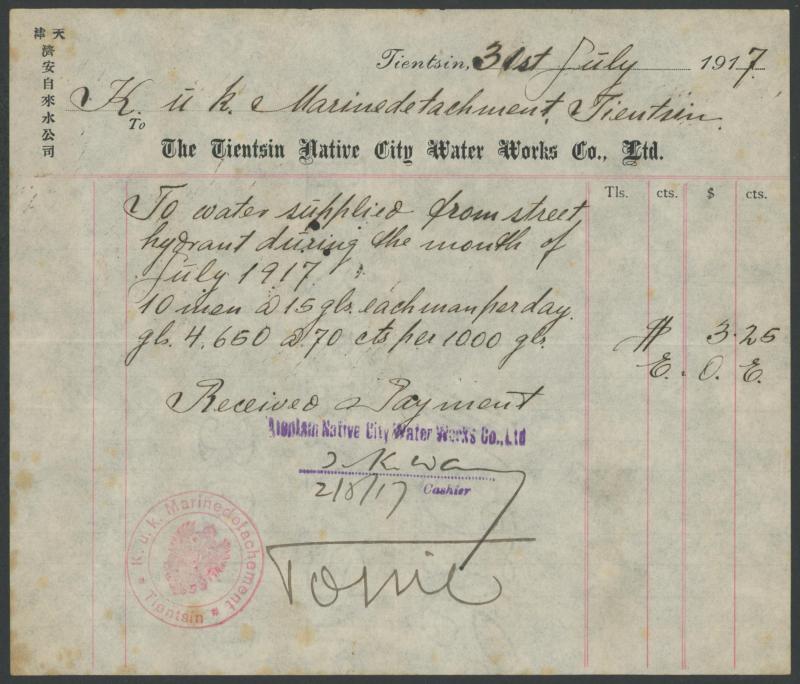 天津
濟安自來水公司
Tientsin, 31st July 1917.
K. u k. Marinedetachment, Tientsin.
To
The Tientsin Native City Water Works Co., Ltd.
Tls. cts. $ cts.
To water supplied from street
hydrant during the month of
July 1917
10 men a 15 gls. each man per day.
gls. 4,650 a 70 cts per 1000 gls. $ 3.25
E. O. E.
Received Payment
Tientsin Native City Water Works Co., Ltd
2/8/17 Cashier
K. u. k. Marinedetachement
Tientsin